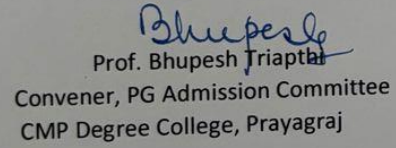 Bhupesh
Prof. Bhupesh Triapthi
Convener, PG Admission Committee
CMP Degree College, Prayagraj